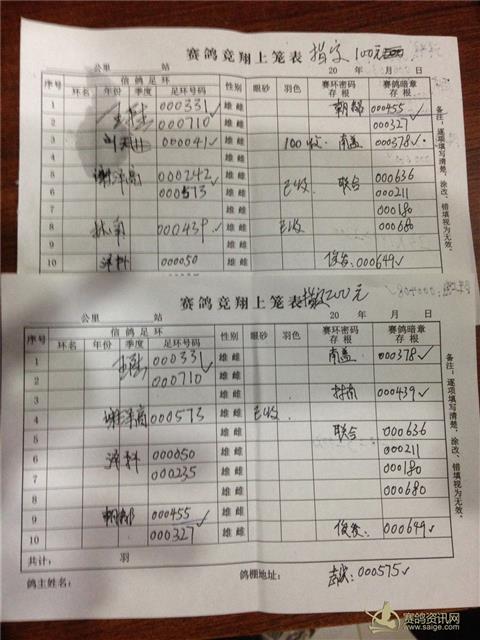 赛鸽竞翔上笼表 指定100元
公里 站 20 年 月 日
序号 信鸽足环 性别 眼砂 羽色 赛环密码存根 赛鸽暗章存根
环名 年份 季度 足环号码
1 000331 雄 雌 朝部 000455
2 000710 雄 雌 000327
3 000041 雄 雌 100收 南孟 000378
4 雄 雌
5 000242 雄 雌 联合 000636
6 000573 雄 雌 已收 000211
7 雄 雌 000180
8 000439 雄 雌 已收 000680
9 雄 雌
10 000050 雄 雌 俊发 000649
备注：逐项填写清楚，涂改、错填视为无效。
赛鸽竞翔上笼表 指定200元
公里 站 20 年 月 日
序号 信鸽足环 性别 眼砂 羽色 赛环密码存根 赛鸽暗章存根
环名 年份 季度 足环号码
1 000331 雄 雌 南孟 000378
2 000710 雄 雌
3 雄 雌 000439
4 000573 雄 雌 已收
5 雄 雌 联合 000636
6 000050 雄 雌 000211
7 000235 雄 雌 000180
8 雄 雌 000680
9 朝部 000455 雄 雌
10 000327 雄 雌 俊发 000649
共计： 羽
备注：逐项填写清楚，涂改、错填视为无效。
鸽主姓名： 鸽棚地址： 000575
赛鸽资讯网
www.saige.com